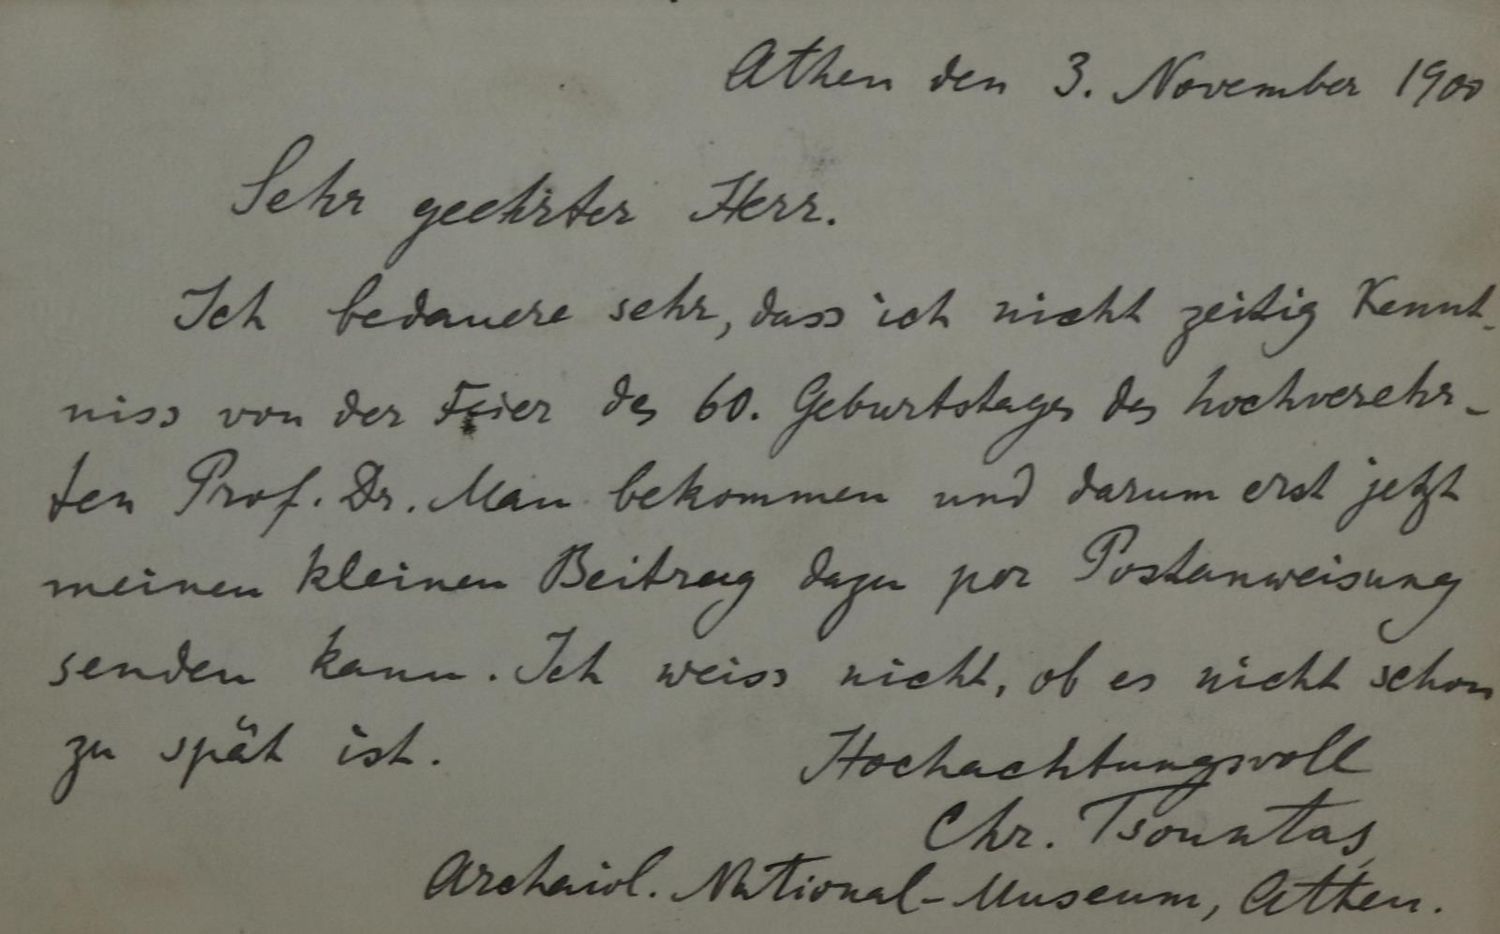 Athen den 3. November 1900
Sehr geehrter Herr.
Ich bedauere sehr, dass ich nicht zeitig Kennt-
niss von der Feier des 60. Geburtstages des hochverehr-
ten Prof. Dr. Mau bekommen und darum erst jetzt
meinen kleinen Beitrag dazu per Postanweisung
senden kann. Ich weiss nicht, ob es nicht schon
zu spät ist.
Hochachtungsvoll
Chr. Tsountas
Archaiol. National-Museum, Athen.